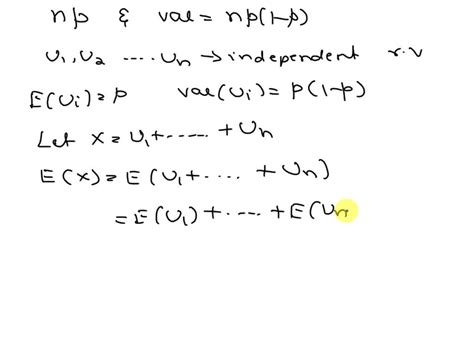 np & var = np(1-p)
U₁, U₂ ---- Uₙ → independent r.v
E(Uᵢ) = p var(Uᵢ) = p(1-p)
Let X = U₁ + ----- + Uₙ
E(X) = E(U₁ + ---- + Uₙ)
= E(U₁) + ---- + E(Uₙ